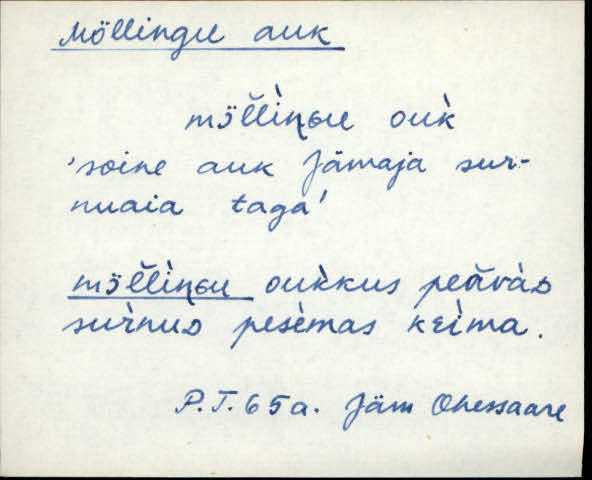 Möllingu auk
mö̆ĺĺìŋɢu ouk̀
'soine auk Jämaja sur-
nuaia taga'
mö̆ĺĺìŋɢu oukkus peăvàᴅ
surnuᴅ pesèmas keima.
P.T. 65a. Jäm Ohessaare